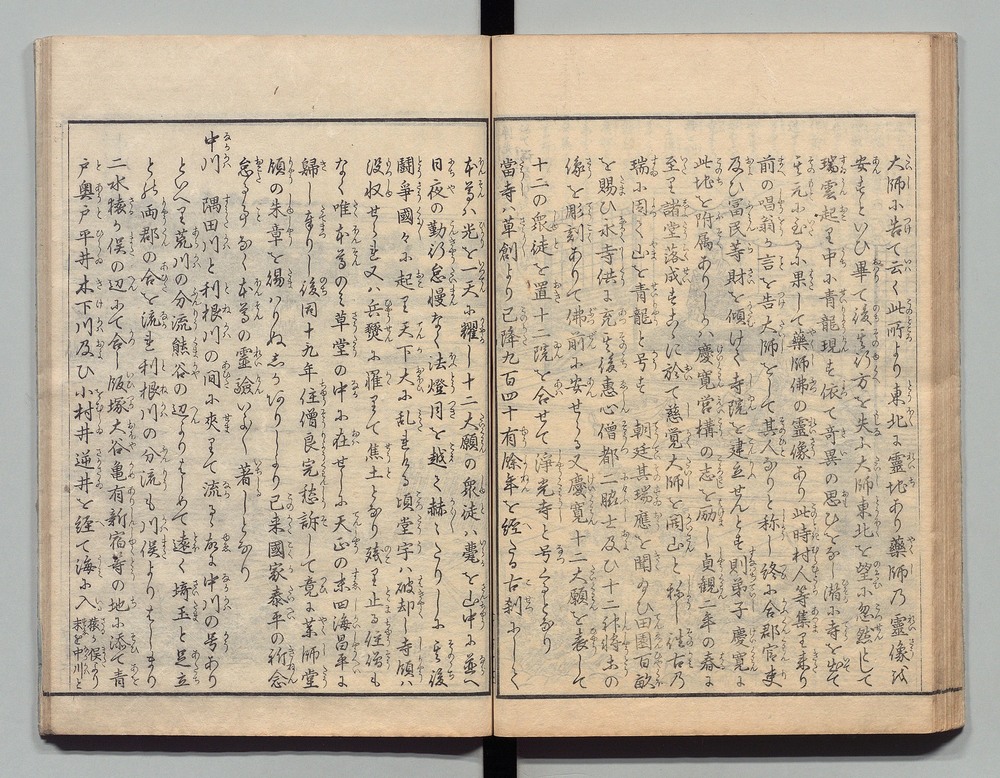 大師に告て云く此所より東北に靈地あり藥師乃靈像を
安もといひ畢て後其行方を失ふ大師東北を望に忽然として
瑞雲起り中に青龍現も依て奇異の思ひをなし潜に寺を出て
其元に至るに果して藥師佛の靈像あり此時村人等集り来り
前の唱翁か言を告大師をして其人なりと称し終に合郡官吏
及ひ富民等財を傾けて寺院を建立せんとも則弟子慶寛に
此地を附属ありしかハ慶寛営構の志を励し貞観二年の春に
至り諸堂落成もこゝに於て慈覚大師を開山と称し往古乃
瑞に因て山を青龍と号も朝廷其瑞應を聞のひ田園百畝
を賜ひ永寺供に充も後惠心僧都二脇士及ひ十二神将土の
像を彫刻ありて佛前に安せらる又慶寛十二大願を表して
十二の衆徒を置十二院を合せて浄光寺と号るとなり
當寺ハ草創より已降九百四十有餘年を経たる古刹にして
本尊ハ光を一天に耀し十二大願の衆徒ハ甍を山中に並へ
日夜の勤行怠慢なく法燈月を越て赫々たりしに其後
闘爭國々に起り天下大に乱まるの頃堂宇ハ破却し寺領ハ
没収せられ又ハ兵燹に罹りて焦土となり残り止る住僧も
なく唯本尊のミ草堂の中に在せしに天正の末四海昌平に
歸し奉りし後同十九年住僧良完愁訴して竟に藥師堂
領の朱章を賜ハりぬしかありしより已来國家泰平の祈念
怠る事なく本尊の靈驗いよ〳〵著しとなり
中川 隅田川と利根川の間に夾りて流るゝ故に中川の号あり
といへり荒川の分流熊谷の辺よりはしめて遠く埼玉と足立
との両郡の合を流れ利根川の分流も川俣よりはしまり
二水猿か俣の辺にて合し飯塚大谷亀有新宿等の地に添て青
戸奥戸平井木下川及ひ小村井逆井を経て海に入 猿か俣より末を中川と